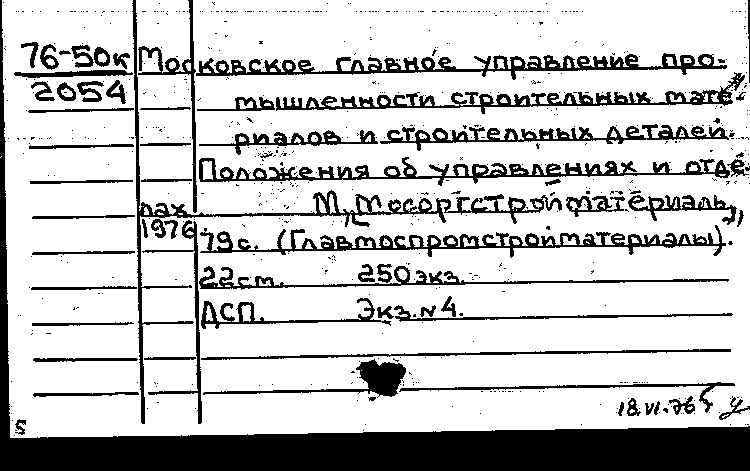 76-50к Московское главное управление про-
2054 мышленности строительных мате-
риалов и строительных деталей.
Положения об управлениях и отде-
лах. М., "Мосоргстройматериалы",
1976. 79с. (Главмоспромстройматериалы).
22см. 250экз.
ДСП. Экз.№4.
18.VI.76
5